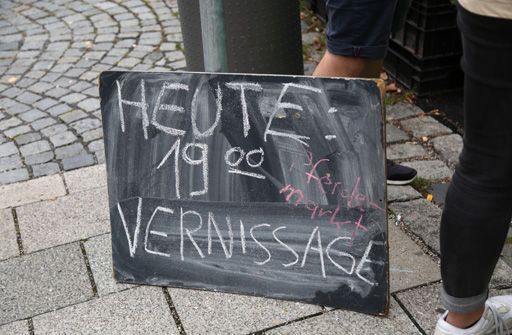 HEUTE:
19 00
markt
VERNISSAGE